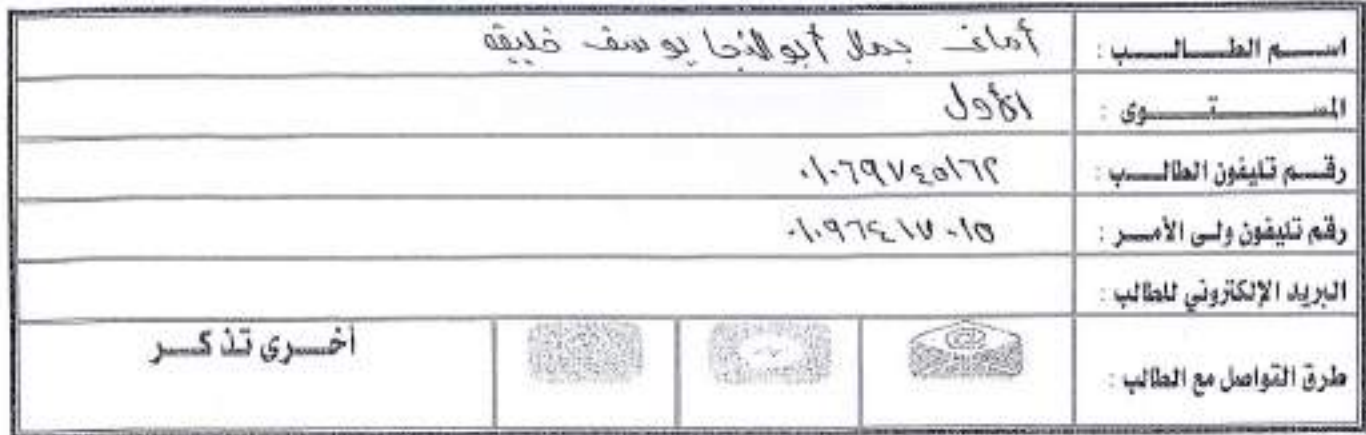 اسم الطالب : أمانى جمال أبو النجا يوسف خليفه
المستوى : الأول
رقم تليفون الطالب : ٠١٠٦٩٧٤٥١٦٢
رقم تليفون ولى الأمر : ٠١٠٩٦٤١٧٠١٥
البريد الإلكتروني للطالب :
طرق التواصل مع الطالب : أخرى تذكر